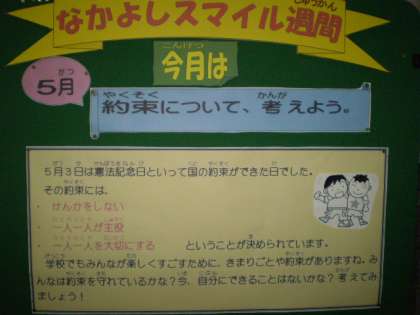 なかよしスマイル週間
今月は
5月
約束について、考えよう。
5月3日は憲法記念日といって国の約束ができた日でした。
その約束には、
・ けんかをしない
・ 一人一人が主役
・ 一人一人を大切にする ということが決められています。
学校でもみんなが楽しくすごすために、きまりごとや約束がありますね。み
んなは約束を守れているかな？今、自分にできることはないかな？考えてみ
ましょう！